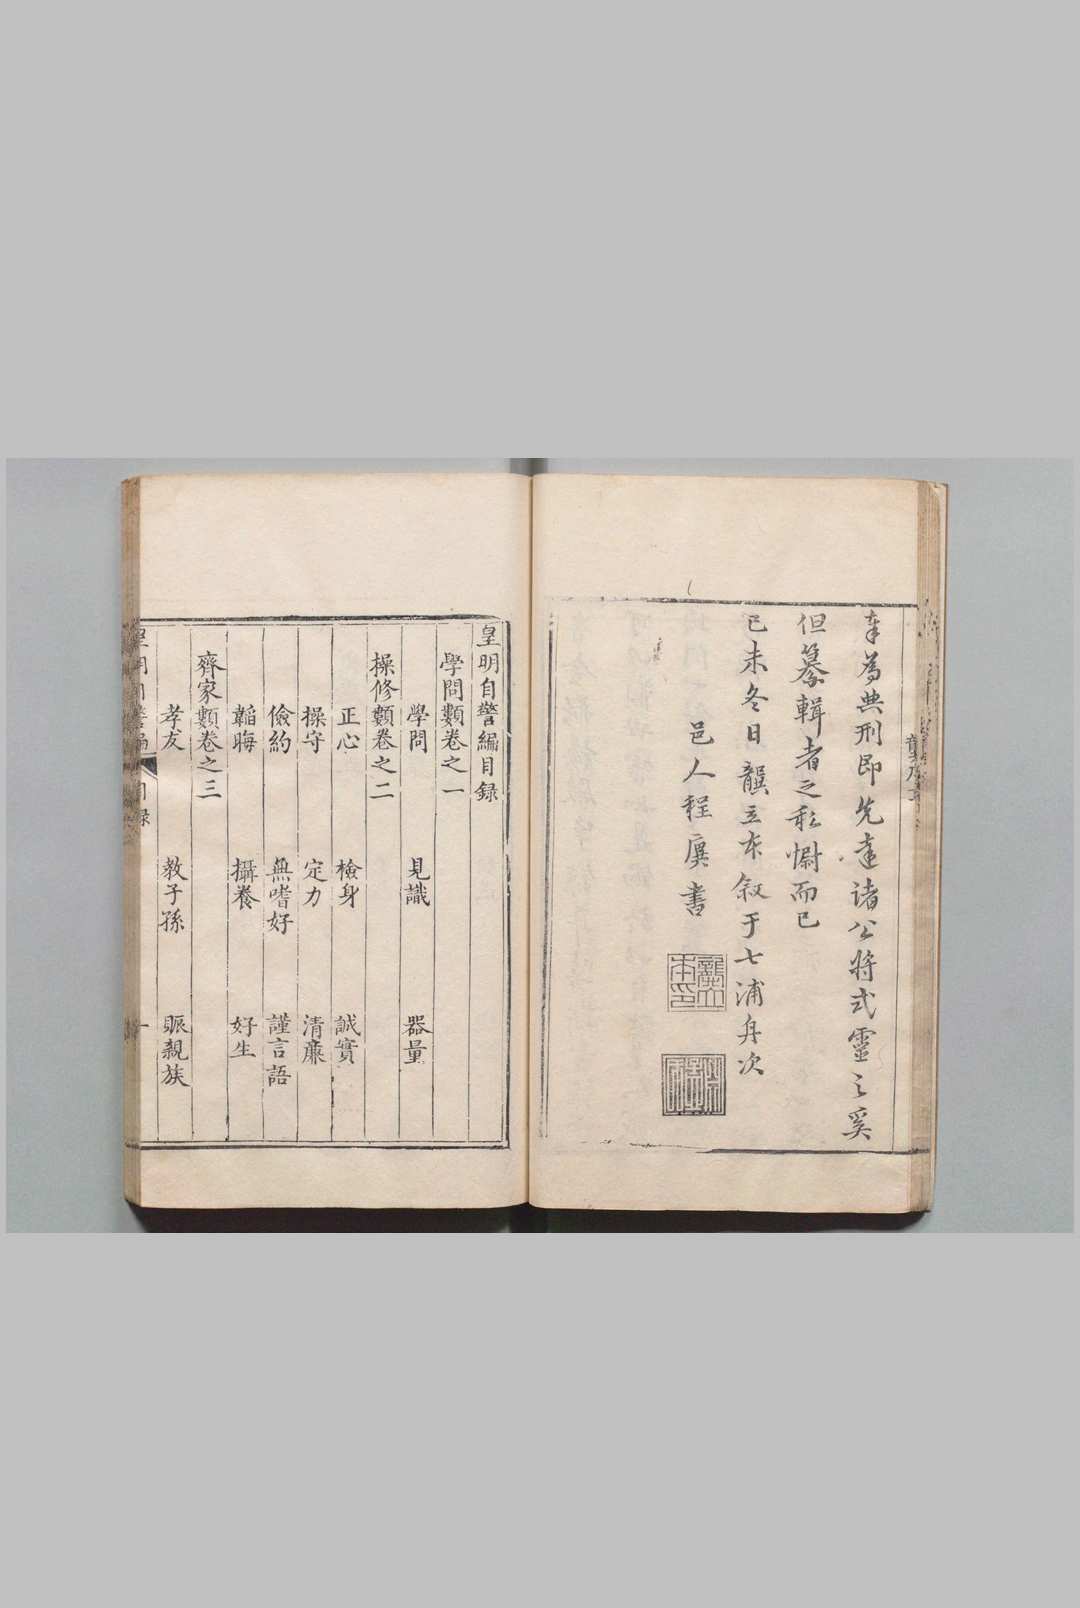 奉為典刑即先達諸公將式靈之奚
但纂輯者之私慰而已
已未冬日龔立本叙于七浦舟次
邑人程賡書
龔立本印
皇明自警編目録
學問類卷之一
學問 見識 器量
操修類卷之二
正心 檢身 誠實
操守 定力 清廉
儉約 無嗜好 謹言語
韜晦 攝養 好生
齊家類卷之三
孝友 教子孫 賑親族
皇明自警編 目録 一